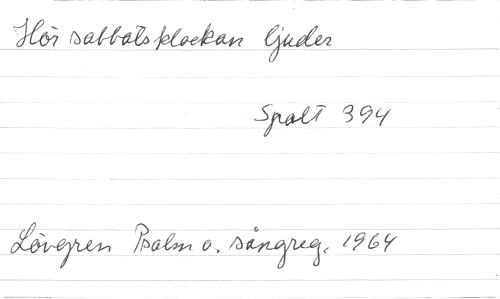 Hör sabbatsklockan ljuder
Spalt 394
Lövgren Psalm o. sångreg. 1964